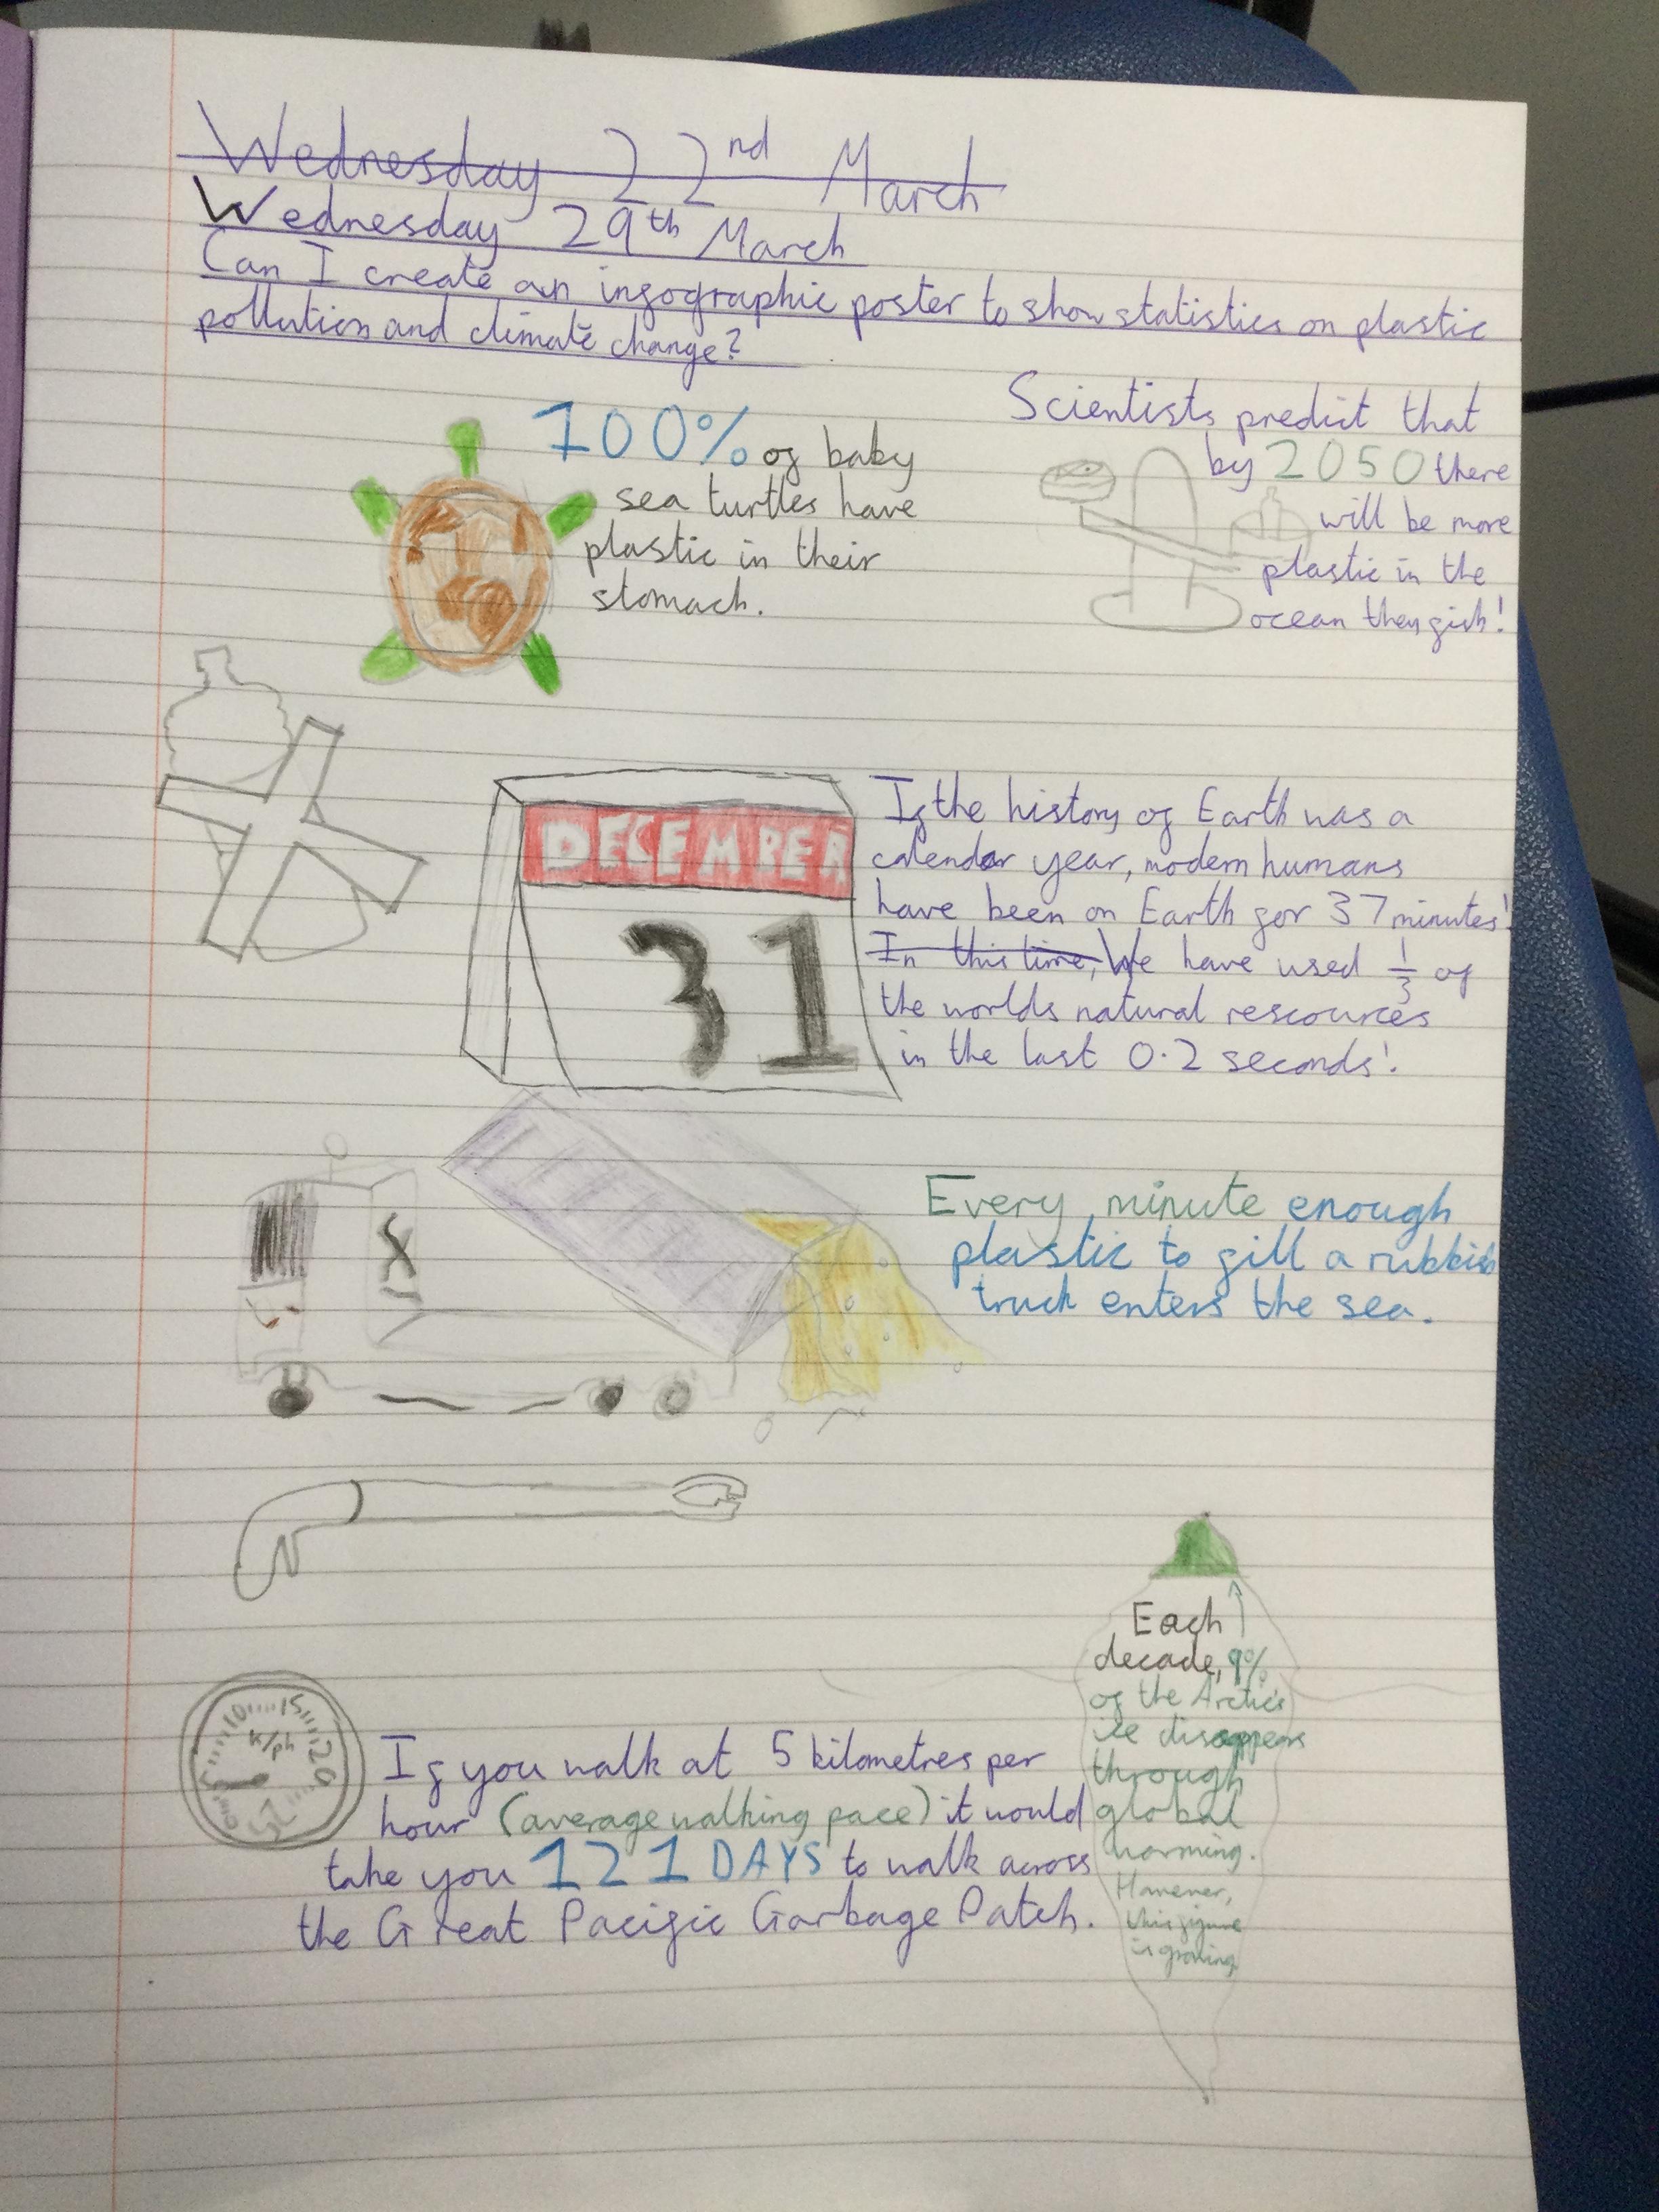 Wednesday 22nd March
Wednesday 29th March
Can I create an infographic poster to show statistics on plastic
pollution and climate change?
100% of baby
sea turtles have
plastic in their
stomach.
Scientists predict that
by 2050 there
will be more
plastic in the
ocean then fish!
DECEMBER
31
If the history of Earth was a
calendar year, modern humans
have been on Earth for 37 minutes!
In this time, We have used 1/3 of
the worlds natural rescources
in the last 0.2 seconds!
Every minute enough
plastic to fill a rubbish
truck enters the sea.
Each
decade, 9%
of the Arctic's
ice disappears
through
global
warming.
However,
this figure
is growing
0 5 10 15 20 25
k/ph
If you walk at 5 kilometres per
hour (average walking pace) it would
take you 121 DAYS to walk across
the Great Pacific Garbage Patch.